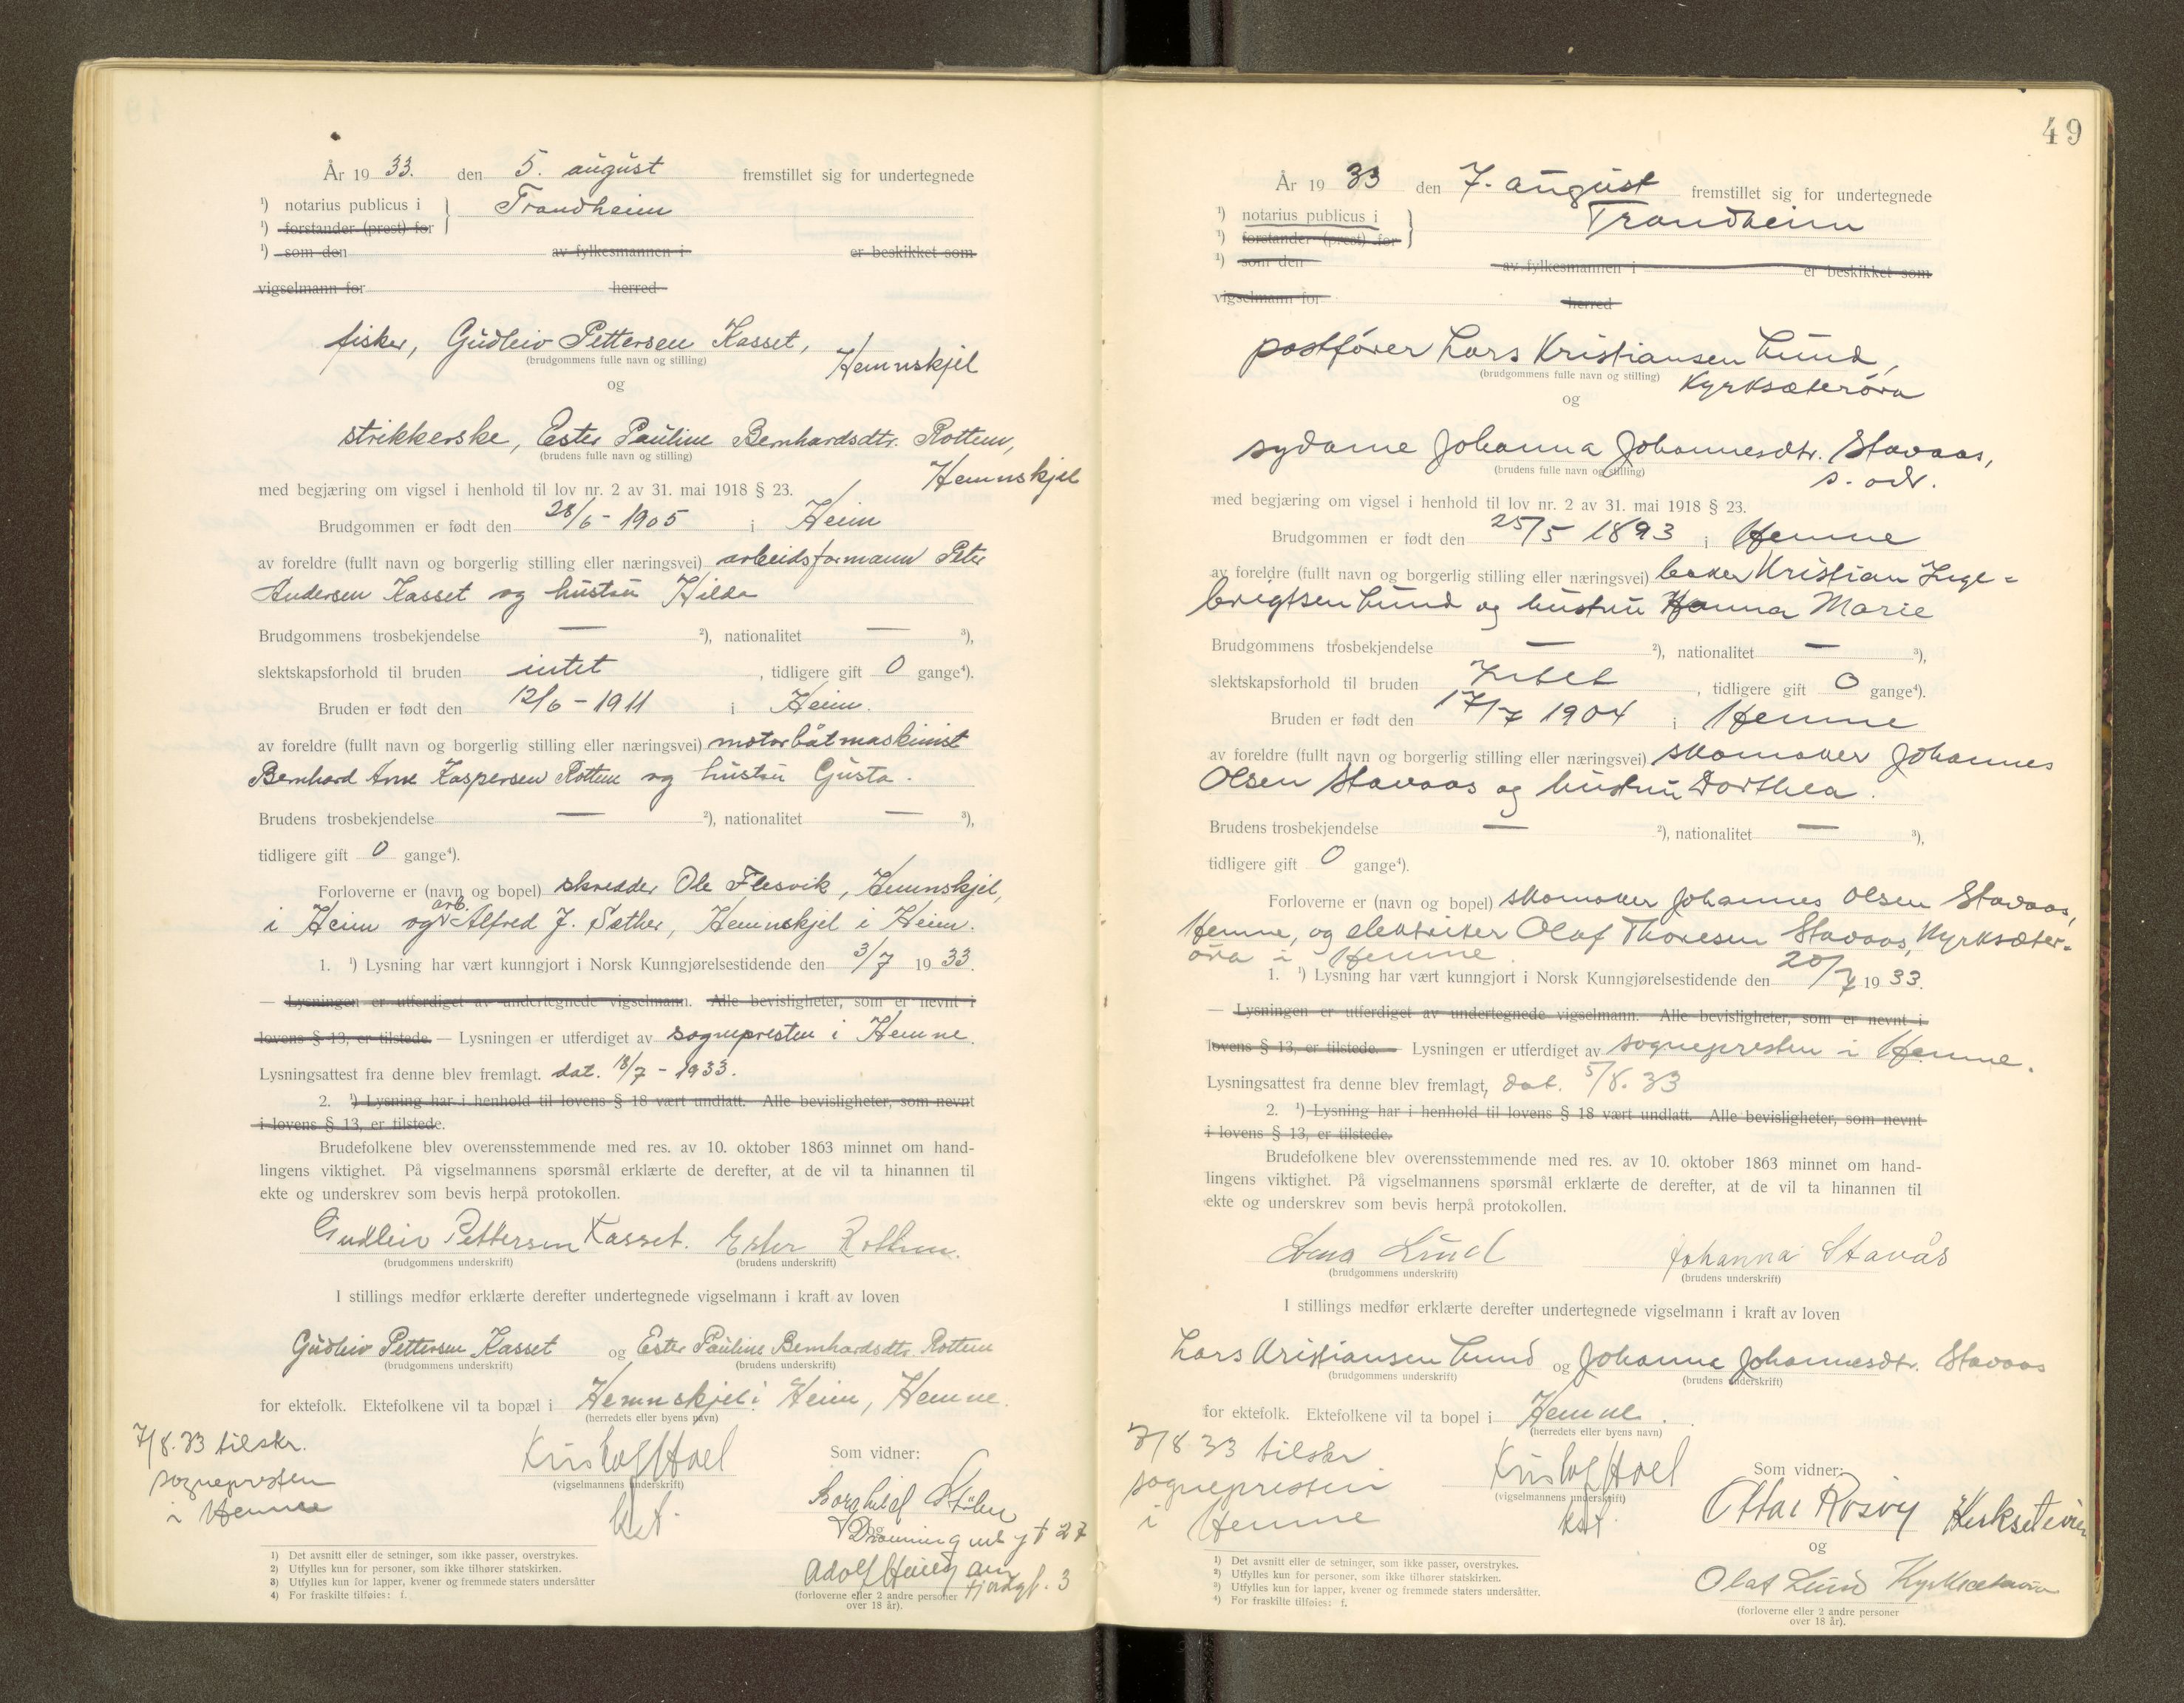 År 19 33. den 5. august fremstillet sig for undertegnede
¹) notarius publicus i } Trondheim
¹) forstander (prest) for
¹) som den av fylkesmannen i er beskikket som
vigselmann for herred
fisker, Gudleiv Pettersen Kasset,
(brudgommens fulle navn og stilling)
Hemnskjel
og
strikkerske, Ester Pauline Bernhardsdtr. Rottem,
(brudens fulle navn og stilling)
Hemnskjel
med begjæring om vigsel i henhold til lov nr. 2 av 31. mai 1918 § 23.
Brudgommen er født den 28/6 - 1905 i Heim
av foreldre (fullt navn og borgerlig stilling eller næringsvei) arbeidsformann Peter
Andersen Kasset og hustru Hilda
Brudgommens trosbekjendelse — ²), nationalitet — ³),
slektskapsforhold til bruden intet , tidligere gift 0 gange⁴).
Bruden er født den 12/6 - 1911 i Heim.
av foreldre (fullt navn og borgerlig stilling eller næringsvei) motorbåtmaskinist
Bernhard Kaspersen Rottem og hustru Gusta.
Brudens trosbekjendelse — ²), nationalitet — ³),
tidligere gift 0 gange⁴).
Forloverne er (navn og bopel) skredder Ole Flesvik, Hemnskjel,
i Heim og arb. Alfred J. Sæther, Hemnskjel i Heim.
1. ¹) Lysning har vært kunngjort i Norsk Kunngjørelsestidende den 3/7 19 33.
— Lysningen er utferdiget av undertegnede vigselmann. Alle bevisligheter, som er nevnt i
lovens § 13, er tilstede. — Lysningen er utferdiget av sognepresten i Hemne.
Lysningsattest fra denne blev fremlagt. dat. 18/7 - 1933.
2. ¹) Lysning har i henhold til lovens § 18 vært undlatt. Alle bevisligheter, som nevnt
i lovens § 13, er tilstede.
Brudefolkene blev overensstemmende med res. av 10. oktober 1863 minnet om hand-
lingens viktighet. På vigselmannens spørsmål erklærte de derefter, at de vil ta hinannen til
ekte og underskrev som bevis herpå protokollen.
Gudleiv Pettersen Kasset. Ester Rottem.
(brudgommens underskrift) (brudens underskrift)
I stillings medfør erklærte derefter undertegnede vigselmann i kraft av loven
Gudleiv Pettersen Kasset og Ester Pauline Bernhardsdtr. Rottem
(brudgommens underskrift) (brudens underskrift)
for ektefolk. Ektefolkene vil ta bopæl i Hemnskjel i Heim, Hemne.
(herredets eller byens navn)
7/8.33 tilskr.
sognepresten
i Hemne
Hoel
(vigselmannens underskrift)
kst.
Som vidner:
Borghild Stølen
og
Dronningensgt 27
Adolf
(forloverne eller 2 andre personer
over 18 år).
1) Det avsnitt eller de setninger, som ikke passer, overstrykes.
2) Utfylles kun for personer, som ikke tilhører statskirken.
3) Utfylles kun for lapper, kvener og fremmede staters undersåtter
4) For fraskilte tilføies: f.
49
År 19 33 den 7. august fremstillet sig for undertegnede
¹) notarius publicus i } Trondheim
¹) forstander (prest) for
¹) som den av fylkesmannen i er beskikket som
vigselmann for herred
postfører Lars Kristiansen Lund,
(brudgommens fulle navn og stilling)
Kyrksæterøra
og
sydame Johanna Johannesdtr. Stavaas,
(brudens fulle navn og stilling)
s. adr.
med begjæring om vigsel i henhold til lov nr. 2 av 31. mai 1918 § 23.
Brudgommen er født den 25/5 1893 i Hemne
av foreldre (fullt navn og borgerlig stilling eller næringsvei) baker Kristian Inge-
brigtsen Lund og hustru Hanna Marie
Brudgommens trosbekjendelse — ²), nationalitet — ³),
slektskapsforhold til bruden Intet , tidligere gift 0 gange⁴).
Bruden er født den 17/7 1904 i Hemne
av foreldre (fullt navn og borgerlig stilling eller næringsvei) skomaker Johannes
Olsen Stavaas og hustru Dorthea.
Brudens trosbekjendelse — ²), nationalitet — ³),
tidligere gift 0 gange⁴).
Forloverne er (navn og bopel) skomaker Johannes Olsen Stavaas,
Hemne, og elektriker Olaf Thoresen Stavaas, Kyrksæter-
øra i Hemne.
1. ¹) Lysning har vært kunngjort i Norsk Kunngjørelsestidende den 20/7 19 33.
— Lysningen er utferdiget av undertegnede vigselmann. Alle bevisligheter, som er nevnt i
lovens § 13, er tilstede. — Lysningen er utferdiget av sognepresten i Hemne.
Lysningsattest fra denne blev fremlagt, dat. 5/8. 33
2. ¹) Lysning har i henhold til lovens § 18 vært undlatt. Alle bevisligheter, som nevnt
i lovens § 13, er tilstede.
Brudefolkene blev overensstemmende med res. av 10. oktober 1863 minnet om hand-
lingens viktighet. På vigselmannens spørsmål erklærte de derefter, at de vil ta hinannen til
ekte og underskrev som bevis herpå protokollen.
Lars Lund Johanna Stavås
(brudgommens underskrift) (brudens underskrift)
I stillings medfør erklærte derefter undertegnede vigselmann i kraft av loven
Lars Kristiansen Lund og Johanna Johannesdtr. Stavaas
(brudgommens underskrift) (brudens underskrift)
for ektefolk. Ektefolkene vil ta bopel i Hemne.
(herredets eller byens navn)
7/8 33 tilskr
sognepresten
i Hemne
Hoel
(vigselmannens underskrift)
kst.
Som vidner:
Ottar Rosvy
og
Olaf Lund Kyrksæterøra
(forloverne eller 2 andre personer
over 18 år).
¹) Det avsnitt eller de setninger, som ikke passer, overstrykes.
²) Utfylles kun for personer, som ikke tilhører statskirken.
³) Utfylles kun for lapper, kvener og fremmede staters undersåtter.
⁴) For fraskilte tilføies: f.